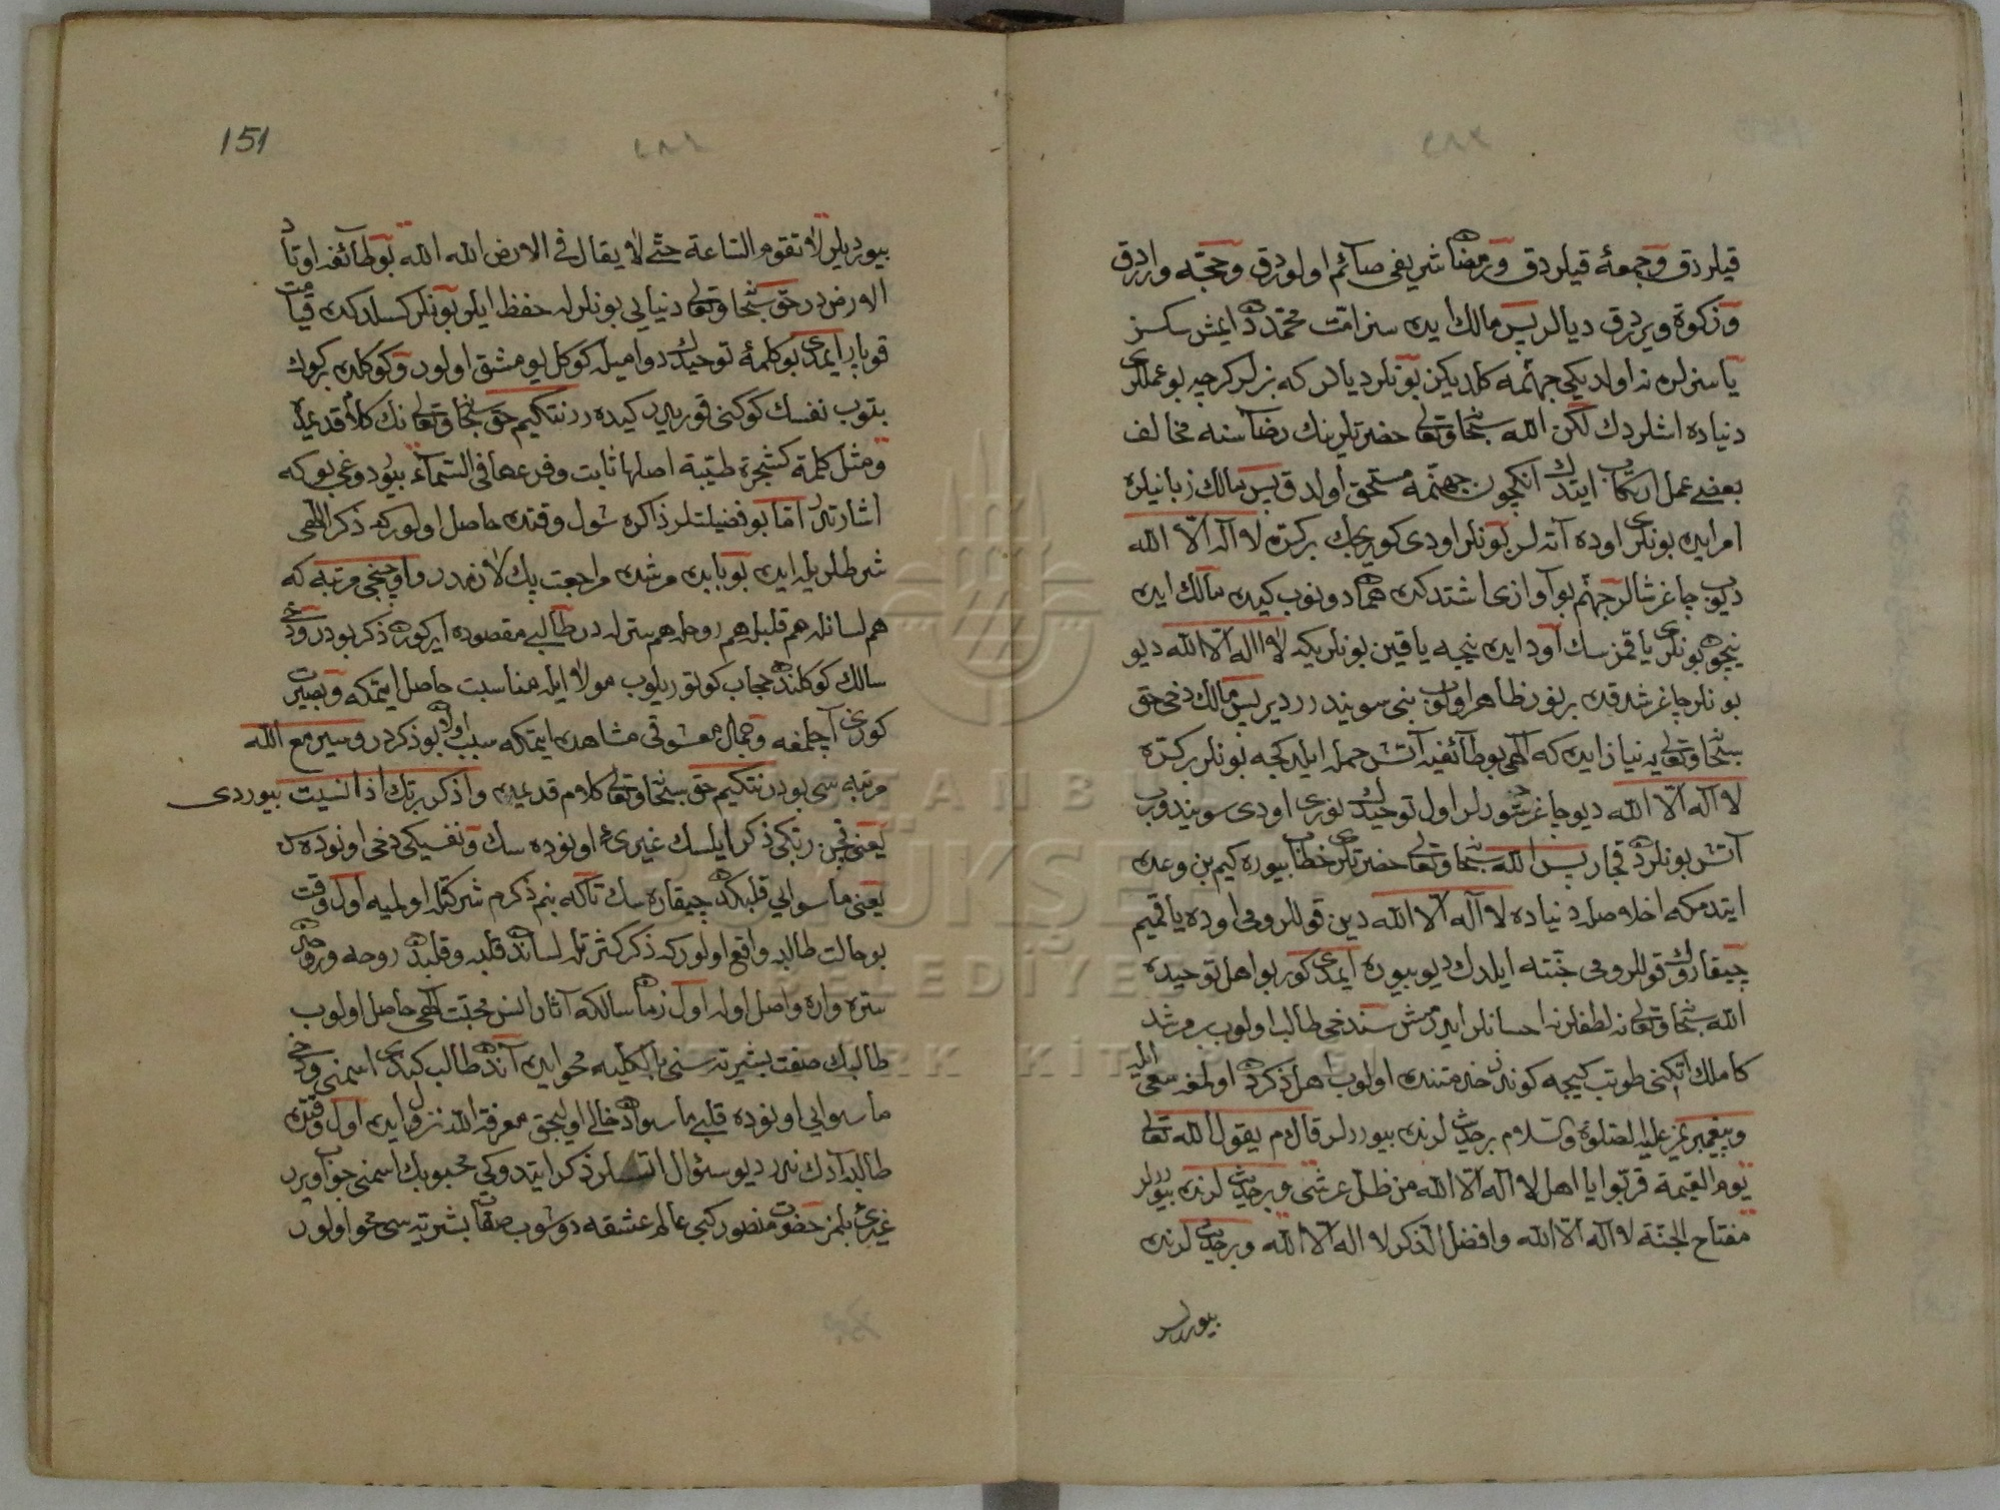 قيلردق و جمعهٔ قيلردق و رمضان شريفى صآئم اولوردق و حجّه واردق
و زكوة ويردق ديالر پس مالك ايده سز امّت محمّددن ايمش سكز
يا سزلره نه اولديكى جهنّمه كلديكز بونلر ديالر كه بزلر كرچه بو عمللرى
دنياده اشلردك لكن الله سبحانه و تعالى حضرتلرينك رضآسنه مخالف
بعضى عمل ارتكاب ايتدك انكچون جهنّمه مستحق اولدق پس مالك زبانيلره
امر ايده بونلرى اوده آته لر بونلر اودى كوريجك بر كزه لا اله الا الله
ديوب چاغرشالر جهنّم بو آوازى اشتدكده هماندم دونوب كيده مالك ايده
نيچون بونلرى ياقمزسك اود ايده نيجه ياقين بونلر يكه لا اله الا الله ديو
بونلر چاغرشدقده بر نور ظاهر اولوب بنى سويندرر دير پس مالك دخى حق
سبحانه و تعالى يه نياز ايده كه الهى بو طآئفيه آتش حمله ايليجكه بونلر بر كزه
لا اله الا الله ديو چاغرشورلر اول توحيدك نورى اودى سويندروب
آتش بونلردن قچار پس الله سبحانه و تعالى حضرتلرى خطاب بيوره كيم بن وعده
ايتدمكه اخلاصله دنياده لا اله الا الله دين قوللرومى اوده ياقميم
چيقاروك قوللرومى جنّته ايلدك ديو بيوره ايمدى كور بو اهل توحيده
الله سبحانه و تعالى نه لطفلر نه احسانلر ايدرمش سن دخى طالب اولوب بر مرشد
كاملك اتكنى طوتب كيجه كوندز خدمتنده اولوب اهل ذكردن اولمغه سعى ايله
و پيغمبريمز عليه الصلوة والسلام بر حديثلرنده بيوررلر قال م يقول الله تعالى
يوم القيمة قربوا يا اهل لا اله الا الله من ظل عرشى و بر حديثلرنده بيوررلر
مفتاح الجنّة لا اله الا الله و افضل الذكر لا اله الا الله و بر حديثلرنده
بيوررلر
151
بيورديلر لا تقوم الساعة حتّى لا يقال فى الارض الله الله بو طآئفه اوتاد
الارضدر حق سبحانه و تعالى دنيايى بونلرله حفظ ايلر بونلر كسلدكده قيامت
قوپار ايمدى بو كلمهٔ توحيدك دواميله كوكل يومشق اولور و كوكلده بر كوك
بتوب نفسك كوكنى قوريدر كيده رر نتكيم حق سبحانه و تعالى نك كلام قديمنده
و مثل كلمة كشجرة طيّبة اصلها ثابت و فرعها فى السّمآء بيوردوغى بوكه
اشارتدر امّا بو فضيلتلر ذاكره شول وقتده حاصل اولور كه ذكر الهى
شرطلريله ايده بو بابده مرشده مراجعت پك لازمدر و اوچنجى مرتبه كه
هم لسانله هم قلبله هم روحله هم سرّله در طالبى مقصوده ايركورن ذكر بودر و دخى
سالك كوكلندن حجاب كوتوريلوب مولا ايله مناسبت حاصل ايتمكه و بصيرت
كوزى آچلمغه و جمال معشوقى مشاهده ايتمكه سبب اولان بو ذكردر و سير مع الله
مرتبه سى بودر نتكيم حق سبحانه و تعالى كلام قديمنده و اذكر ربّك اذا نسيت بيوردى
يعنى قچن ربّكى ذكر ايلسك غيرى اونوده سك و نفسيكى دخى اونوده سك
يعنى ماسوايى قلبكدن چيقاره سك تاكه بنم ذكرم شركتله اولميه اول وقت
بو حالت طالبه واقع اولور كه ذكر كثرتله لساندن قلبه و قلبدن روحه و روحدن
سرّه واره واصل اوله اول زمان سالكه آثار انس محبّت الهى حاصل اولوب
طالبك صفت بشريّه سنى بالكليه محو ايده آندن طالب كندى اسمنى و دخى
ماسوايى اونوده قلبى ماسوادن خالى اوليجق معرفة الله نزول ايده اول وقتده
طالبه آدك نه در ديو سؤال اتسه لر ذكر ايتدوكى محبوبك اسمنى جواب ويرر
غيرى بلمز حضرت منصور كبى عالم عشقه دوشوب صفات بشريّه سى محو اولور